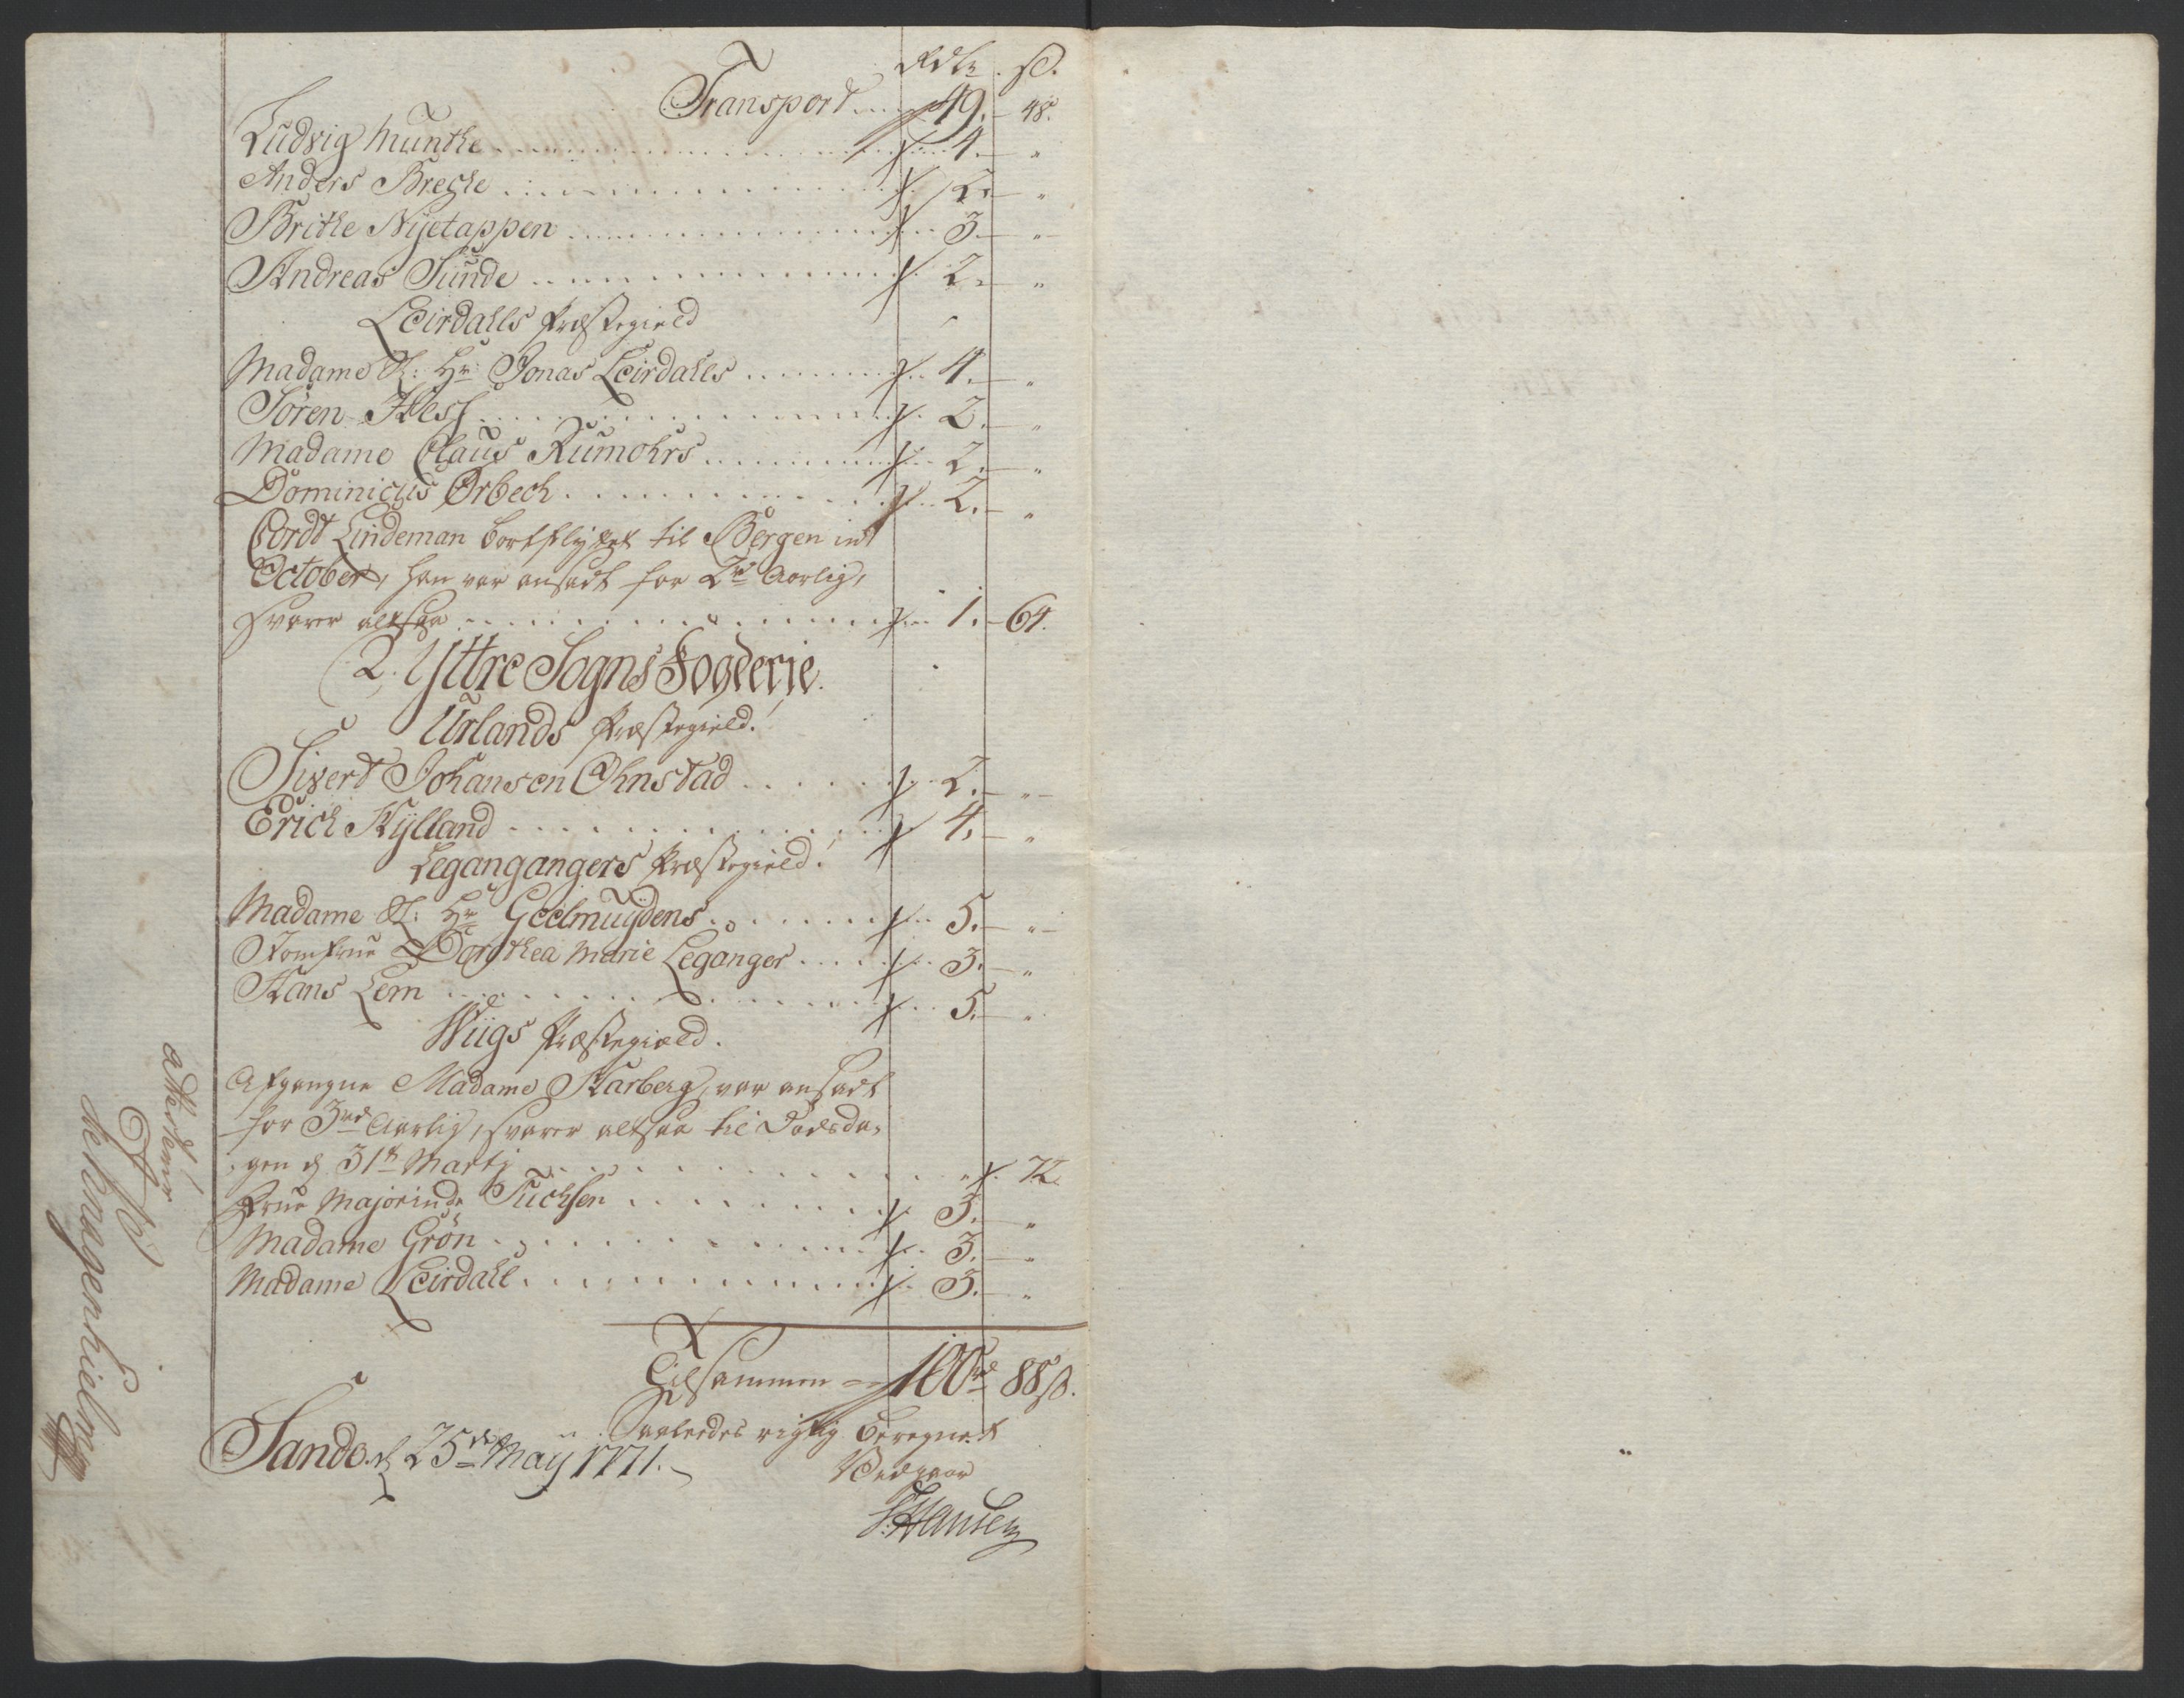 Rdlr. ß.
Transport.... 49. - 48.
Ludvig Munthe ........ 4. - "
Anders Breche ........ 2. - "
Brithe Nyetappen ........ 3. - "
Andreas Sunde ........ 2. - "
Leirdalls Præstegield
Madame Sl: Hr: Jonas Leirdalls ........ 4. - "
Søren Hess ........ 2. - "
Madame Claus Rumohrs ........ 2. - "
Dominicus Ørbech ........ 2. - "
Cordt Lindeman bortflyttet til Bergen in
October, han var ansadt for 2rd Aarlig,
svarer altsaa ........ 1. - 64.
2. Yttre Sogns Fogderie.
Urlands Præstegield.
Sivert Johansen Ohnstad ........ 2. - "
Erich Kylland ........ 4. - "
Legangangers Præstegield.
Madame Sl: Hr Geelmuydens ........ 5. - "
Jomfrue Dorothea Marie Leganger ........ 3. - "
Hans Lem ........ 5. - "
Wiigs Præstegield.
Afgangne Madame Skarberg, var ansadt
for 3rd Aarlig, svarer altsaa til Dødsda-
gen d 31te Martj ........ " 72.
Frue Majorinde Tuchsen ........ 3. - "
Madame Grøn ........ 3. - "
Madame Leirdall ........ 3. - "
Tilsammen 100rd 88ß.
Saaledes rigtig beregnet
Sande d 25de May 1771.
Hansen
Attesterer
de Knagenhielm